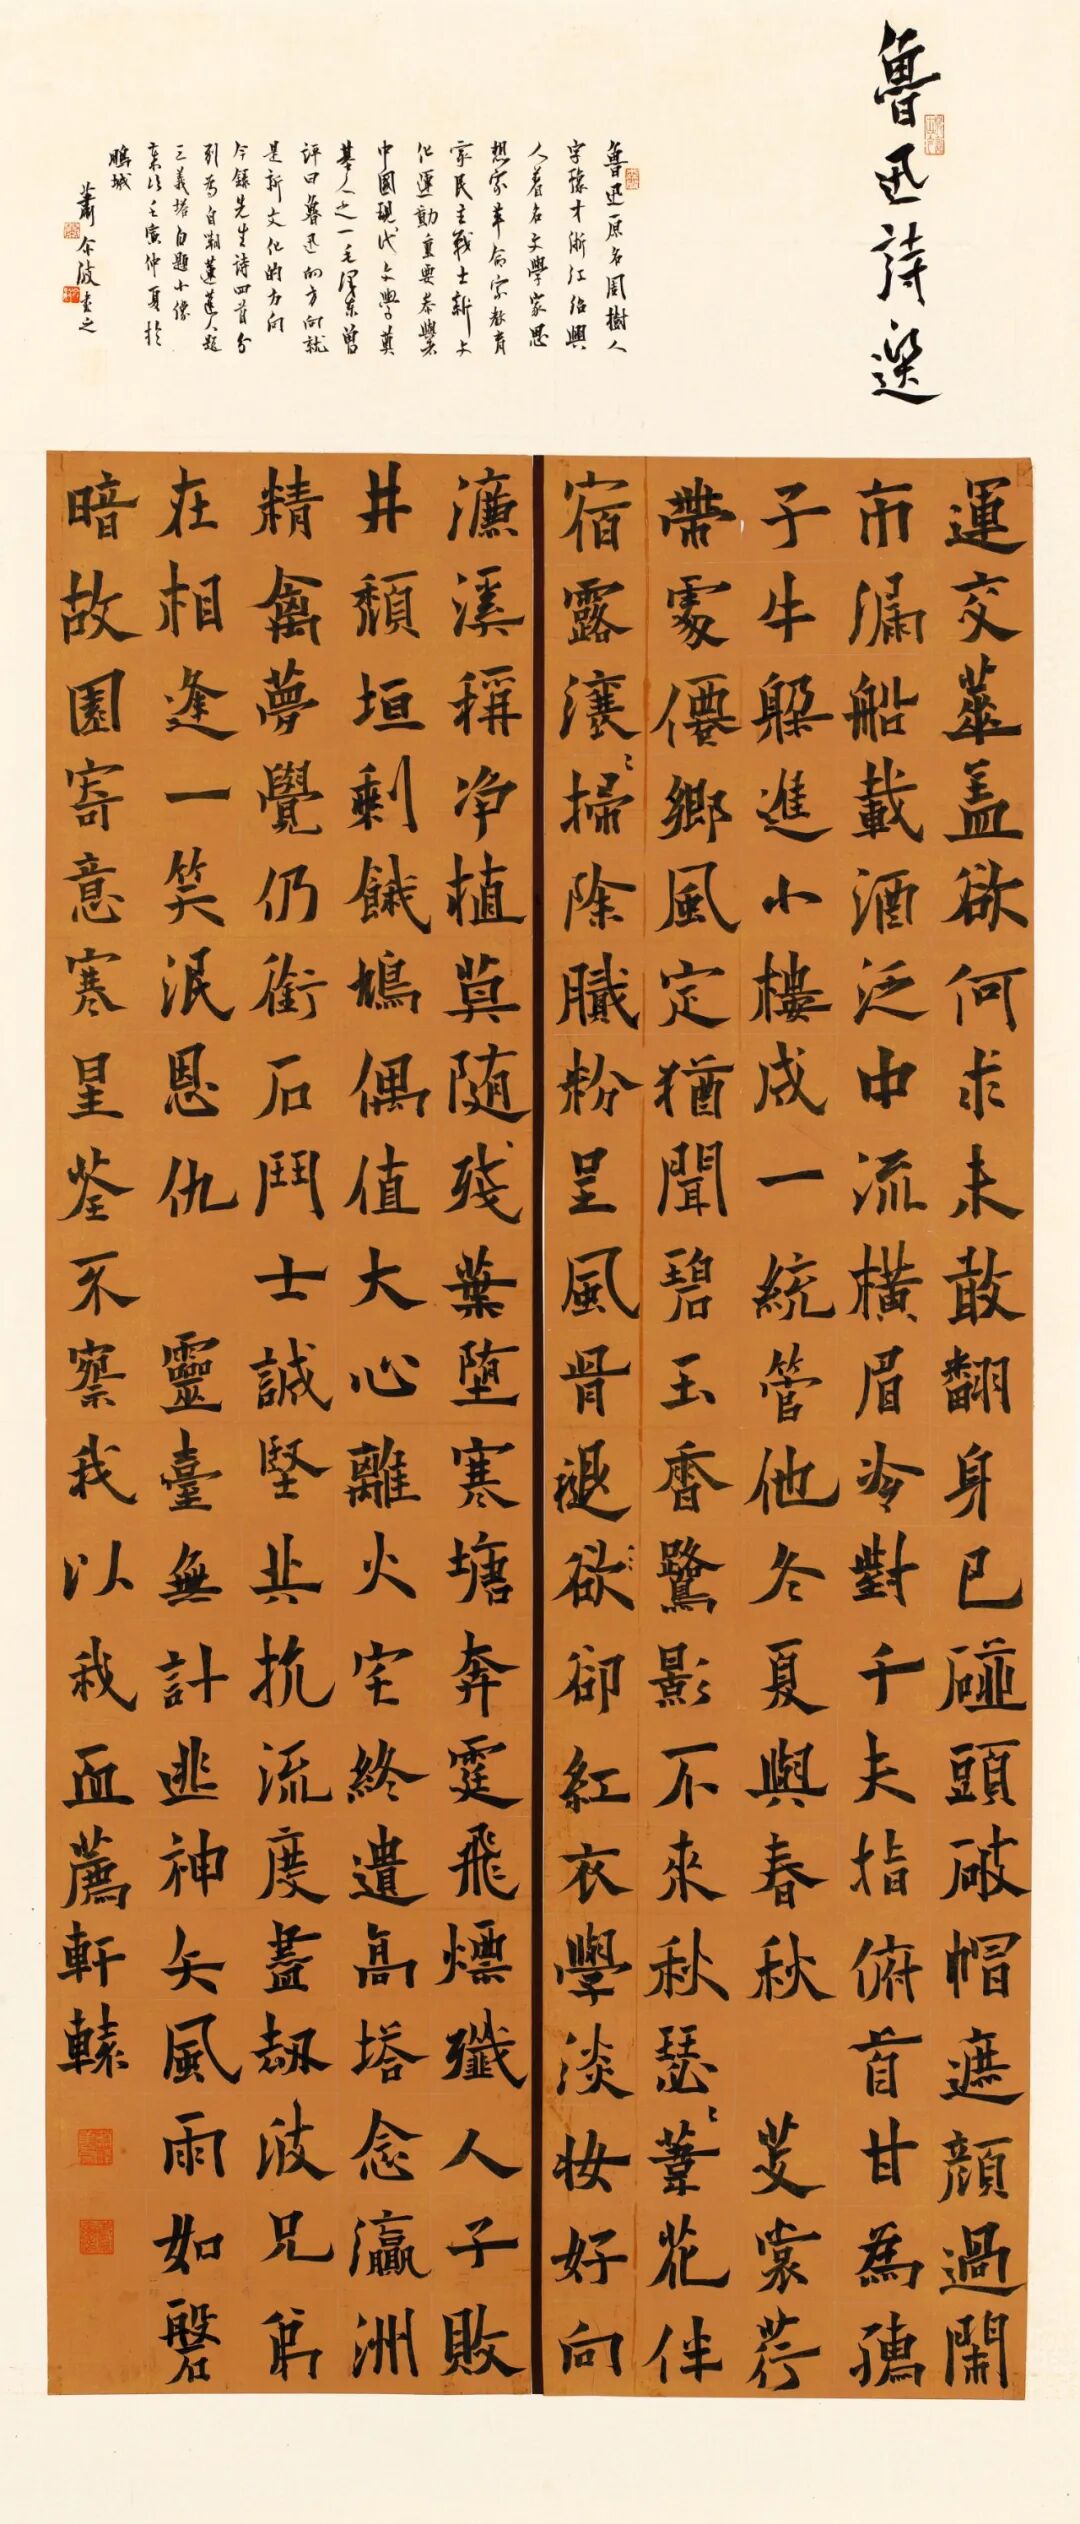 魯迅詩選
魯迅原名周樹人
字豫才浙江紹興
人著名文學家思
想家革命家教育
家民主戰士新文
化運動重要參與
中國現代文學奠
基人之一毛澤東曾
評曰魯迅的方向就
是新文化的方向
今錄先生詩四首分
別為自嘲蓮蓬人題
三義塔自題小像
壬寅仲夏於
鵬城
蕭波書之
運交華蓋欲何求未敢翻身已碰頭破帽遮顏過鬧
市漏船載酒泛中流橫眉冷對千夫指俯首甘為孺
子牛躲進小樓成一統管他冬夏與春秋 芰裳荇
帶處僊鄉風定猶聞碧玉香鷺影不來秋瑟〻葦花伴
宿露瀼〻掃除膩粉呈風骨退欲卻紅衣學淡妝好向
濂溪稱净植莫随殘葉堕寒塘奔霆飛熛殲人子敗
井頹垣剩餓鳩偶值大心離火宅終遺高塔念瀛洲
精禽夢覺仍銜石鬥士誠堅共抗流度盡劫波兄弟
在相逢一笑泯恩仇 靈臺無計逃神矢風雨如磐
暗故園寄意寒星荃不察我以我血薦軒轅